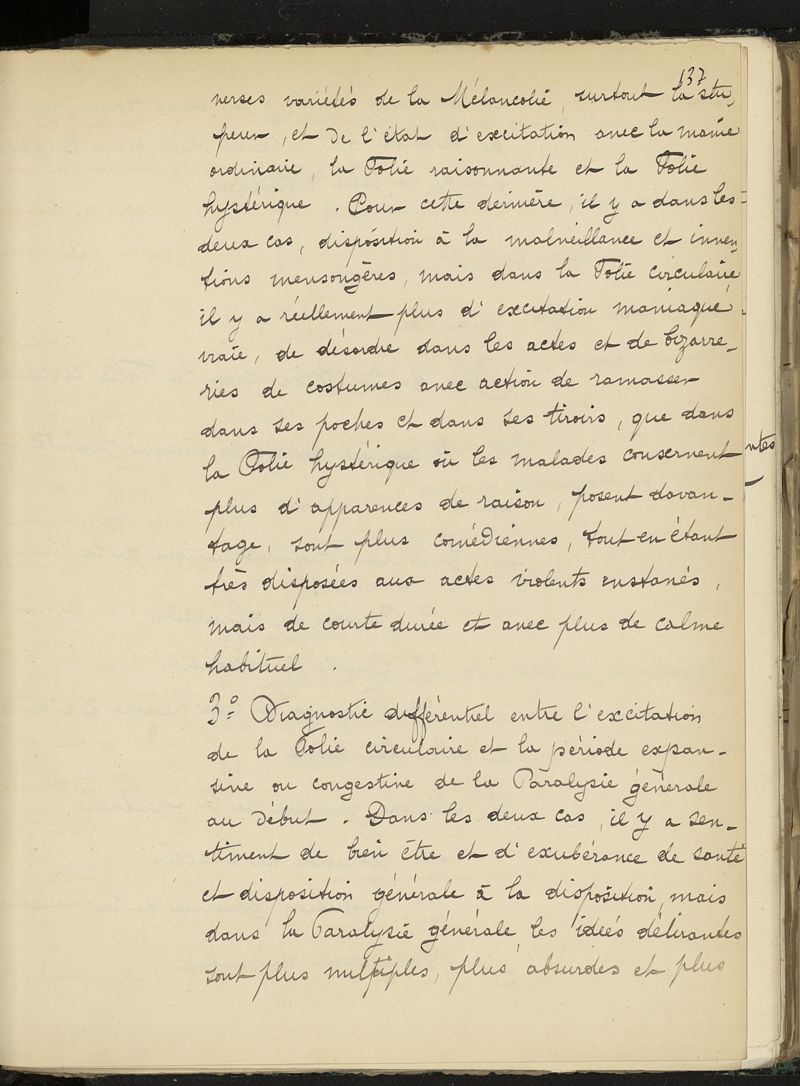 137
verses variétés de la Mélancolie, surtout la stu-
peur, et de l'état d'excitation avec la manie
ordinaire, la Folie raisonnante et la Folie
hystérique. Pour cette dernière, il y a dans les
deux cas, disposition à la malveillance et inven-
tions mensongères, mais dans la Folie circulaire
il y a réellement plus d'excitation maniaque
vraie, de désordre dans les actes et de bizarre-
ries de costumes avec action de ramasser
dans ses poches et dans ses tiroirs, que dans
la Folie hystérique où les malades conservent
plus d'apparences de raison, posent davan-
tage, sont plus comédiennes, tout en étant
très disposées aux actes violents instanés,
mais de courte durée et avec plus de calme
habituel.
3º Diagnostic différentiel entre l'excitation
de la Folie circulaire et la période expan-
sive ou congestive de la Paralysie générale
au début. Dans les deux cas, il y a sen-
timent de bien être et d'exubérance de santé
et disposition générale à la disposition, mais
dans la Paralysie générale les idées délirantes
sont plus multiples, plus absurdes et plus
ntes